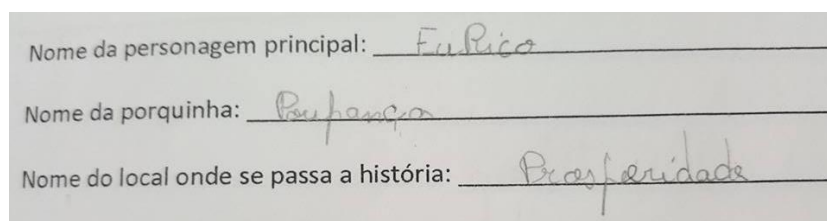 Nome da personagem principal: EuRico
Nome da porquinha: Poupança
Nome do local onde se passa a história: Prosperidade